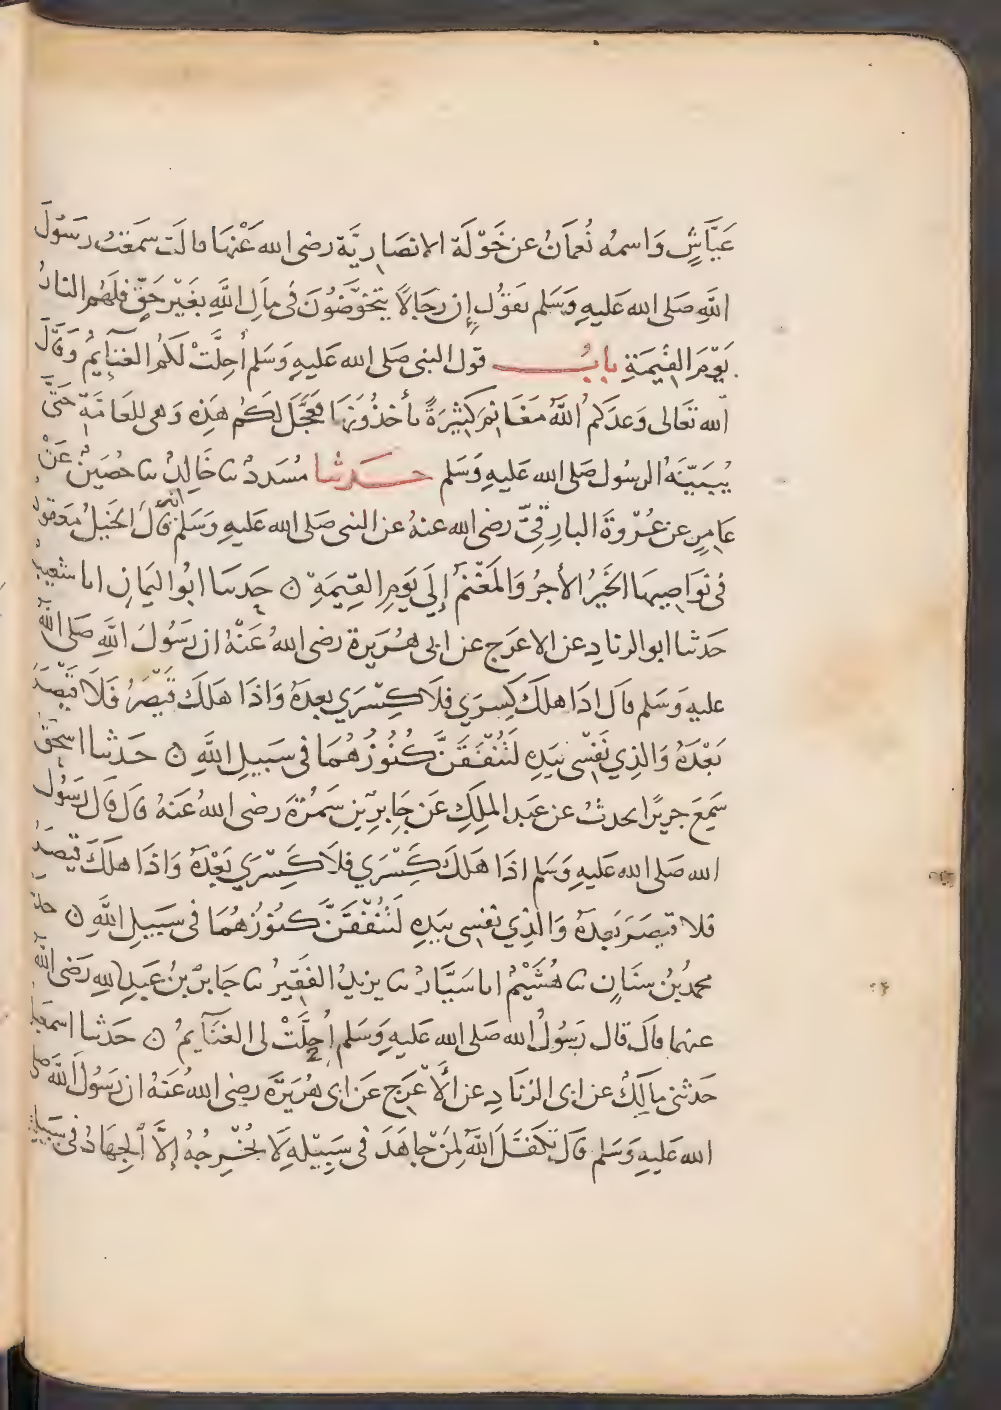 عَيَّاشٍ وَاسمه نُعمَانُ عن خَوْلَة الانصَارِيَّة رضى الله عَنْهَا قالَت سَمعَت رسُولَ
اللَّهِ صَلى الله عَليهِ وَسَلم يَقُول إِن رِجَالًا يَتَخَوَّضُونَ فى مَالِ اللَّهِ بغَيْرِ حَقٍّ فلَهُم النارُ
يَوْمَ القِيمَةِ بابُ قول النبى صَلى الله عَليهِ وَسَلم أحِلَّتْ لَكمُ الغنَايمُ وَقَالَ
الله تَعَالى وَعدَكُم اللَّهُ مغَانِمَ كَثِيرَةً تأخذُونَهَا فعَجَّلَ لَكُم هَذِه وَهى للعَامَّةِ حَتَّى
يُبَيِّنَهُ الرسُول صَلى الله عَليهِ وَسَلم حدثنا مُسَددٌ ثنا خَالِدٌ ثنا حُصَينٌ عَنْ
عَامِرٍ عن عُرْوةَ البارِقىِّ رضى الله عنهُ عن النبى صَلى الله عَليهِ وَسَلم انه قالَ الخَيلُ مَعقودٌ
فى نَوَاصِيهَا الخَيرُ الأجرُ وَالمَغْنَمُ إِلَي يَومِ القِيمَةِ ن حَدثنا ابُو اليَمانِ انا شعيبٌ
حَدثنا ابو الزنادِ عن الاعرَج عن ابى هُرَيرة رضى الله عَنْهُ ان رَسُولَ اللَّهِ صَلى الله
عليهِ وَسَلم قالَ اذَا هلَكَ كِسرَي فلَا كِسْرَي بعدَهُ وَاذَا هَلَكَ قَيْصَرُ فَلَا قَيْصَرَ
بَعْدَهُ وَالذِي نَفْسى بيَدِهِ لَتُنْفَقَنَّ كُنُوزُهُمَا فى سَبِيلِ اللَّهِ ن حَدثنا اسحقُ
سَمِعَ جريرًا يحدثُ عن عبد الملِكِ عَن جَابِرِ بنِ سَمُرَةَ رضى اللهُ عَنهُ قالَ قالَ رسُول
الله صَلى الله عَليهِ وَسَلم اذَا هَلكَ كَِسْرَي فلَا كَِسْرَي بَعْدَهُ وَاذَا هلَكَ قيصَرُ
فَلا قيصَرَ بَعدَهُ وَالذِي نفسى بيَدِهِ لَتُنْفَقَنَّ كنُوزُهُمَا فى سَبيلِ اللَّهِ ن حدثنا
محمدُ بنُ سنَانٍ ثنا هُشَيْمٌ انا سَيَّارٌ ثنا يزيدُ الفَقِيرُ ثنا جَابرُ بنُ عَبدِ اللهِ رَضى الله
عنهما قالَ قال رَسُولُ الله صَلى الله عَليهِ وَسَلم أُحِلَّتْ لى الغنَآيمُ ن حَدثنا اسمعيل
حَدثنى مالِكٌ عن ابى الزنادِ عن الأعْرَج عَن ابى هُرَيْرَةَ رضى الله عَنهُ ان رَسُولَ اللَّهِ صلى
الله عَليهِ وَسَلم قالَ تكَفَّلَ اللَّهُ لِمنْ جاهَدَ فى سَبِيْلِهِ لَا يُخْرِجُهُ إلَّا الجِهَادُ فى سَبِيلِهِ